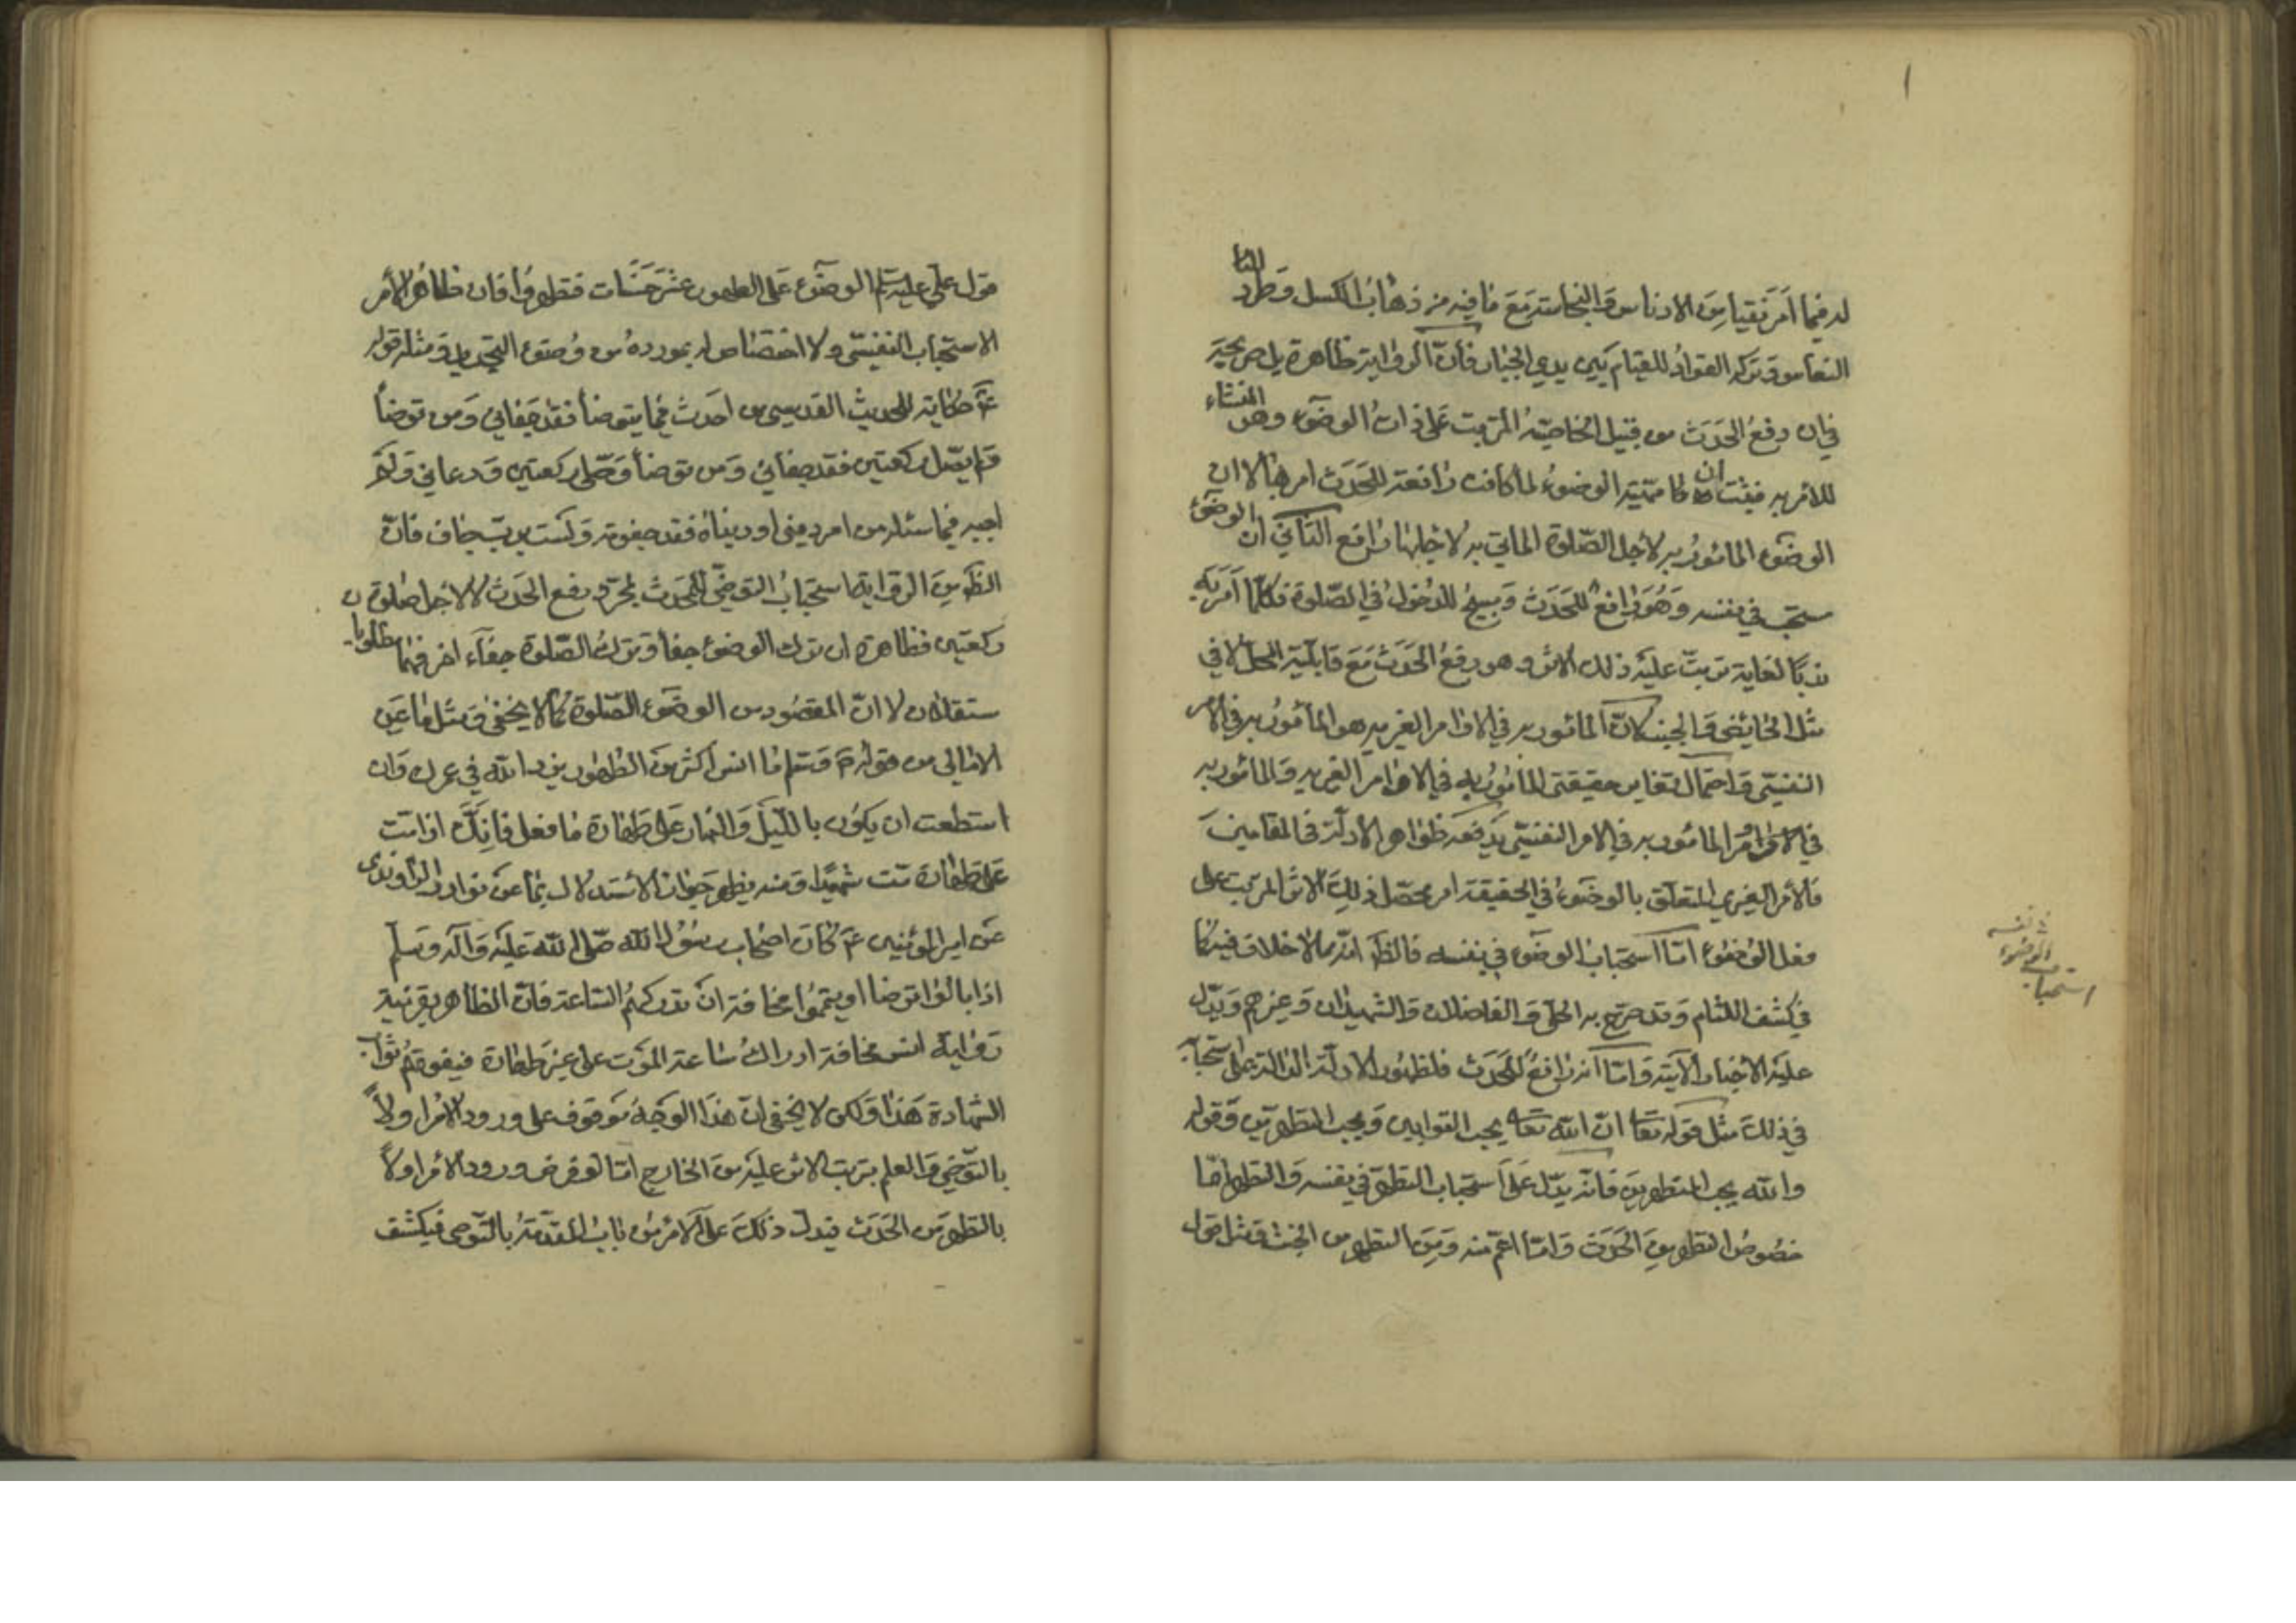 له فيما امر نقيا من الادناس والنجاسة مع ما فيه من ذهاب الكسل وطرد
النعاس وتزكية الفؤاد للقيام بين يدي الجبار فان الرواية ظاهرة بل صريحة
في ان رفع الحدث من قبيل الخاصية المترتبة على ذات الوضوء وهو المنشاء
للامر به فيثبت ان ماهية الوضوء لما كانت رافعة للحدث امر بها لا ان
الوضوء المأمور به لاجل الصلوة الماتي به لاجلها رافع الثاني ان الوضوء
مستحب في نفسه وهو رافع للحدث ومبيح للدخول في الصلوة فكلما امر به
ندبا لغاية ترتب عليه ذلك الاثر وهو رفع الحدث مع قابلية المحل لا في
مثل الحائض والجنب لان المأمور به في الاوامر الغيرية هو المأمور به في الامر
النفسي واحتمال تغاير حقيقتي المأمور به في الاوامر الغيرية والمأمور به
في الاوامر المأمور به في الامر النفسي يدفعه ظواهر الادلة في المقامين
فالامر الغيري المتعلق بالوضوء في الحقيقة امر بمحصل ذلك الاثر المرتب على
فعل الوضوء اما استحباب الوضوء في نفسه فالظ انه مما لا خلاف فيه كما
في كشف اللثام وقد صرح به الحلي والفاضلان والشهيدان وغيرهم ويدل
عليه الاخبار الآتية واما انه رافع للحدث فلظهور الادلة الدالة على استحبابه
في ذلك مثل قوله تعا ان الله تعا يحب التوابين ويحب المتطهرين وقوله
والله يحب المتطهرين فانه يدل على استحباب التطهر في نفسه والتطهر اما
خصوص التطهر من الحدث واما اعم منه ومن التطهر من الخبث ومثل قول
استحباب
الوضوء
في نفسه
قول علي عليه السلم الوضوء على الطهور عشر حسنات فتطهروا فان ظاهر الامر
الاستحباب النفسي ولا اختصاص له بمورده من وضوء التجديد ومثله قوله
ع حكاية للحديث القدسي من احدث فما يتوضأ فقد جفاني ومن توضأ
ولم يصل ركعتين فقد جفاني ومن توضأ وصلى ركعتين ودعاني ولم
اجبه فيما سئله من امر دينه او دنياه فقد جفوته ولست برب جاف فان
الظ من الرواية استحباب التوضي للمحدث لمجرد رفع الحدث لا لاجل صلوة
ركعتين فظاهره ان ترك الوضوء جفاء وترك الصلوة جفاء اخر فهما مطلوبان
مستقلان لا ان المقصود من الوضوء الصلوة كما لا يخفى ومثل ما عن
الامالي من قوله ص وسلم يا انس اكثر من الطهور يزد الله في عمرك وان
استطعت ان يكون بالليل والنهار على طهارة فافعل فانك اذا مت
على طهارة مت شهيدا ومنه يظهر جواز الاستدلال بما عن نوادر الراوندي
عن امير المؤمنين ع كان اصحاب رسول الله صلى الله عليه وآله وسلم
اذا بالوا توضأ او يتمموا مخافة ان تدركهم الساعة فان الظاهر بقرينة
رواية انس مخافة ادراك ساعة الموت على غير طهارة فيفوتهم ثواب
الشهادة هذا ولكن لا يخفى ان هذا الوجه موقوف على ورود الامر اولا
بالتوضي والعلم بترتب الاثر عليه من الخارج اما لو فرض ورود الامر اولا
بالتطهر من الحدث فيدل ذلك على الامر من باب المقدمة بالتوضي فيكشف